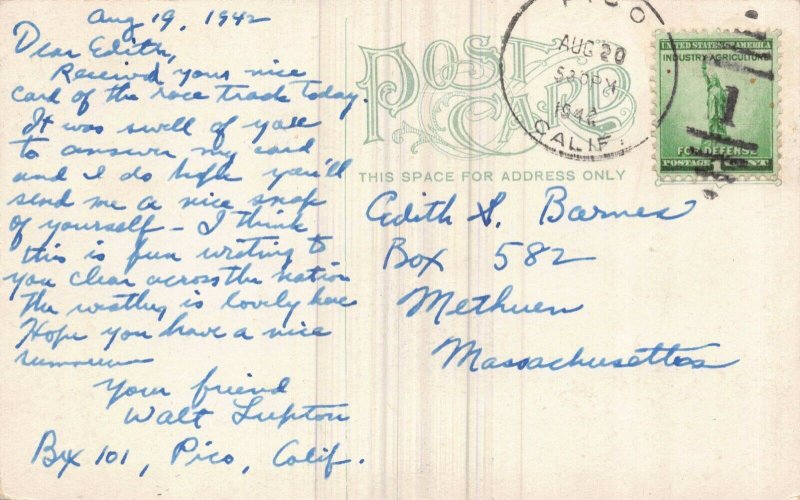 Aug 19, 1942
Dear Edith,
Received your nice
card of the race track today.
It was swell of you
to answer my card
and I do hope you'll
send me a nice snap
of yourself - I think
this is fun writing to
you clear across the nation
The weather is lovely here
Hope you have a nice
summer
Your friend
Walt Lupton
Box 101, Pico, Calif.
POST
CARD
THIS SPACE FOR ADDRESS ONLY
PICO
AUG 20
530PM
1942
CALIF.
UNITED STATES OF AMERICA
INDUSTRY AGRICULTURE
FOR DEFENSE
POSTAGE CENT
1
Edith S. Barnes
Box 582
Methuen
Massachusetts